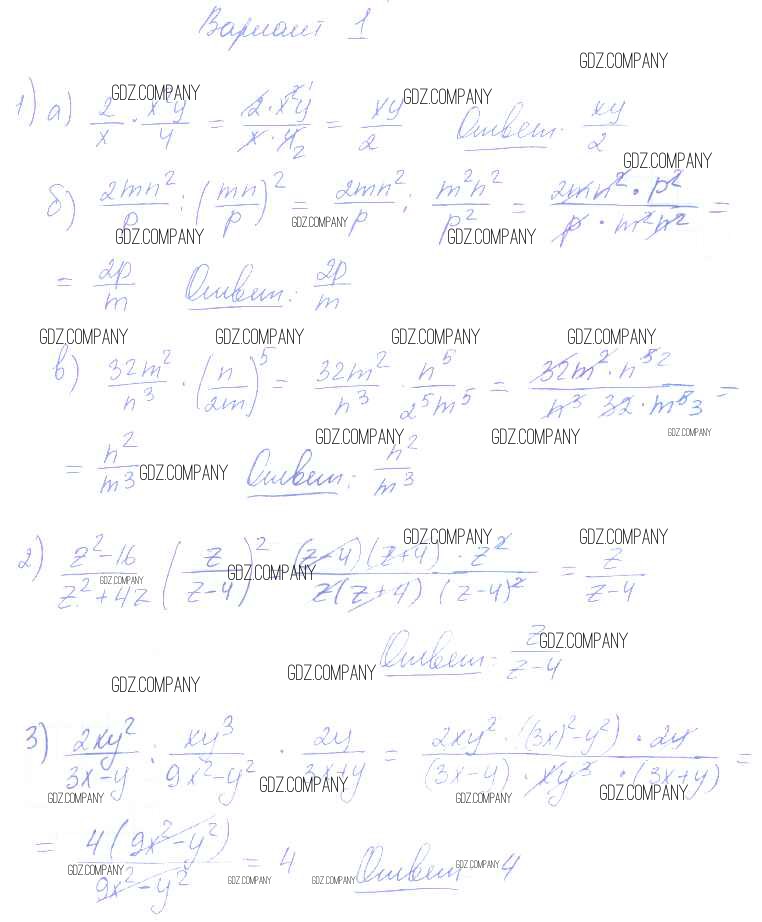 Вариант 1
GDZ.COMPANY
1) а) 2/x · x²y/4 = 2·x²y/x·4 2 = xy/2 Ответ: xy/2
GDZ.COMPANY GDZ.COMPANY
GDZ.COMPANY
б) 2mn²/p : (mn/p)² = 2mn²/p : m²n²/p² = 2mn²·p²/p·m²n² =
GDZ.COMPANY GDZ.COMPANY GDZ.COMPANY
= 2p/m Ответ: 2p/m
GDZ.COMPANY GDZ.COMPANY GDZ.COMPANY GDZ.COMPANY
в) 32m²/n³ · (n/2m)⁵ = 32m²/n³ · n⁵/2⁵m⁵ = 32m²·n⁵ 2/n³ 32·m⁵ 3 =
GDZ.COMPANY GDZ.COMPANY GDZ.COMPANY
= n²/m³ GDZ.COMPANY Ответ: n²/m³
GDZ.COMPANY GDZ.COMPANY
2) z²-16/z²+4z (z/z-4)² (z-4)(z+4)·z²/z(z+4)(z-4)² = z/z-4
GDZ.COMPANY GDZ.COMPANY
Ответ: z/z-4
GDZ.COMPANY
GDZ.COMPANY GDZ.COMPANY
3) 2xy²/3x-y : xy³/9x²-y² · 2y/3x+y = 2xy²·((3x)²-y²)·2y/(3x-y)·xy³·(3x+y) =
GDZ.COMPANY GDZ.COMPANY GDZ.COMPANY GDZ.COMPANY
= 4(9x²-y²)/9x²-y² = 4 Ответ 4
GDZ.COMPANY GDZ.COMPANY GDZ.COMPANY GDZ.COMPANY